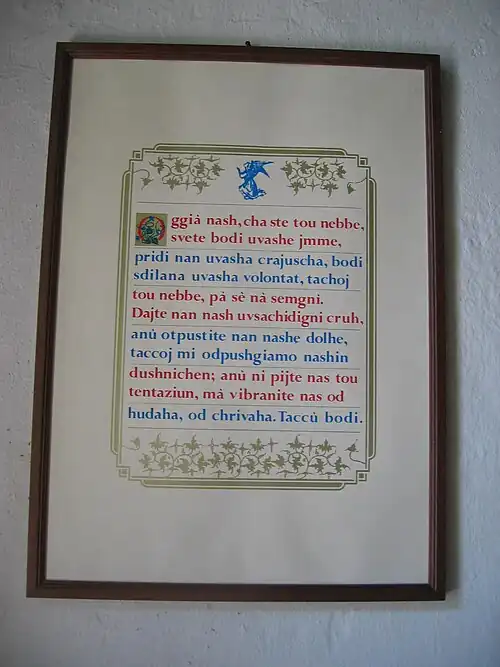 Oggià nash, cha ste tou nebbe,
svete bodi uvashe jmme,
pridi nan uvasha crajuscha, bodi
sdilana uvasha volontat, tachoj
tou nebbe, pà sè nà semgni.
Dajte nan nash uvsachidigni cruh,
anù otpustite nan nashe dolhe,
taccoj mi odpushgiamo nashin
dushnichen; anù ni pijte nas tou
tentaziun, mà vibranite nas od
hudaha, od chrivaha. Taccù bodi.